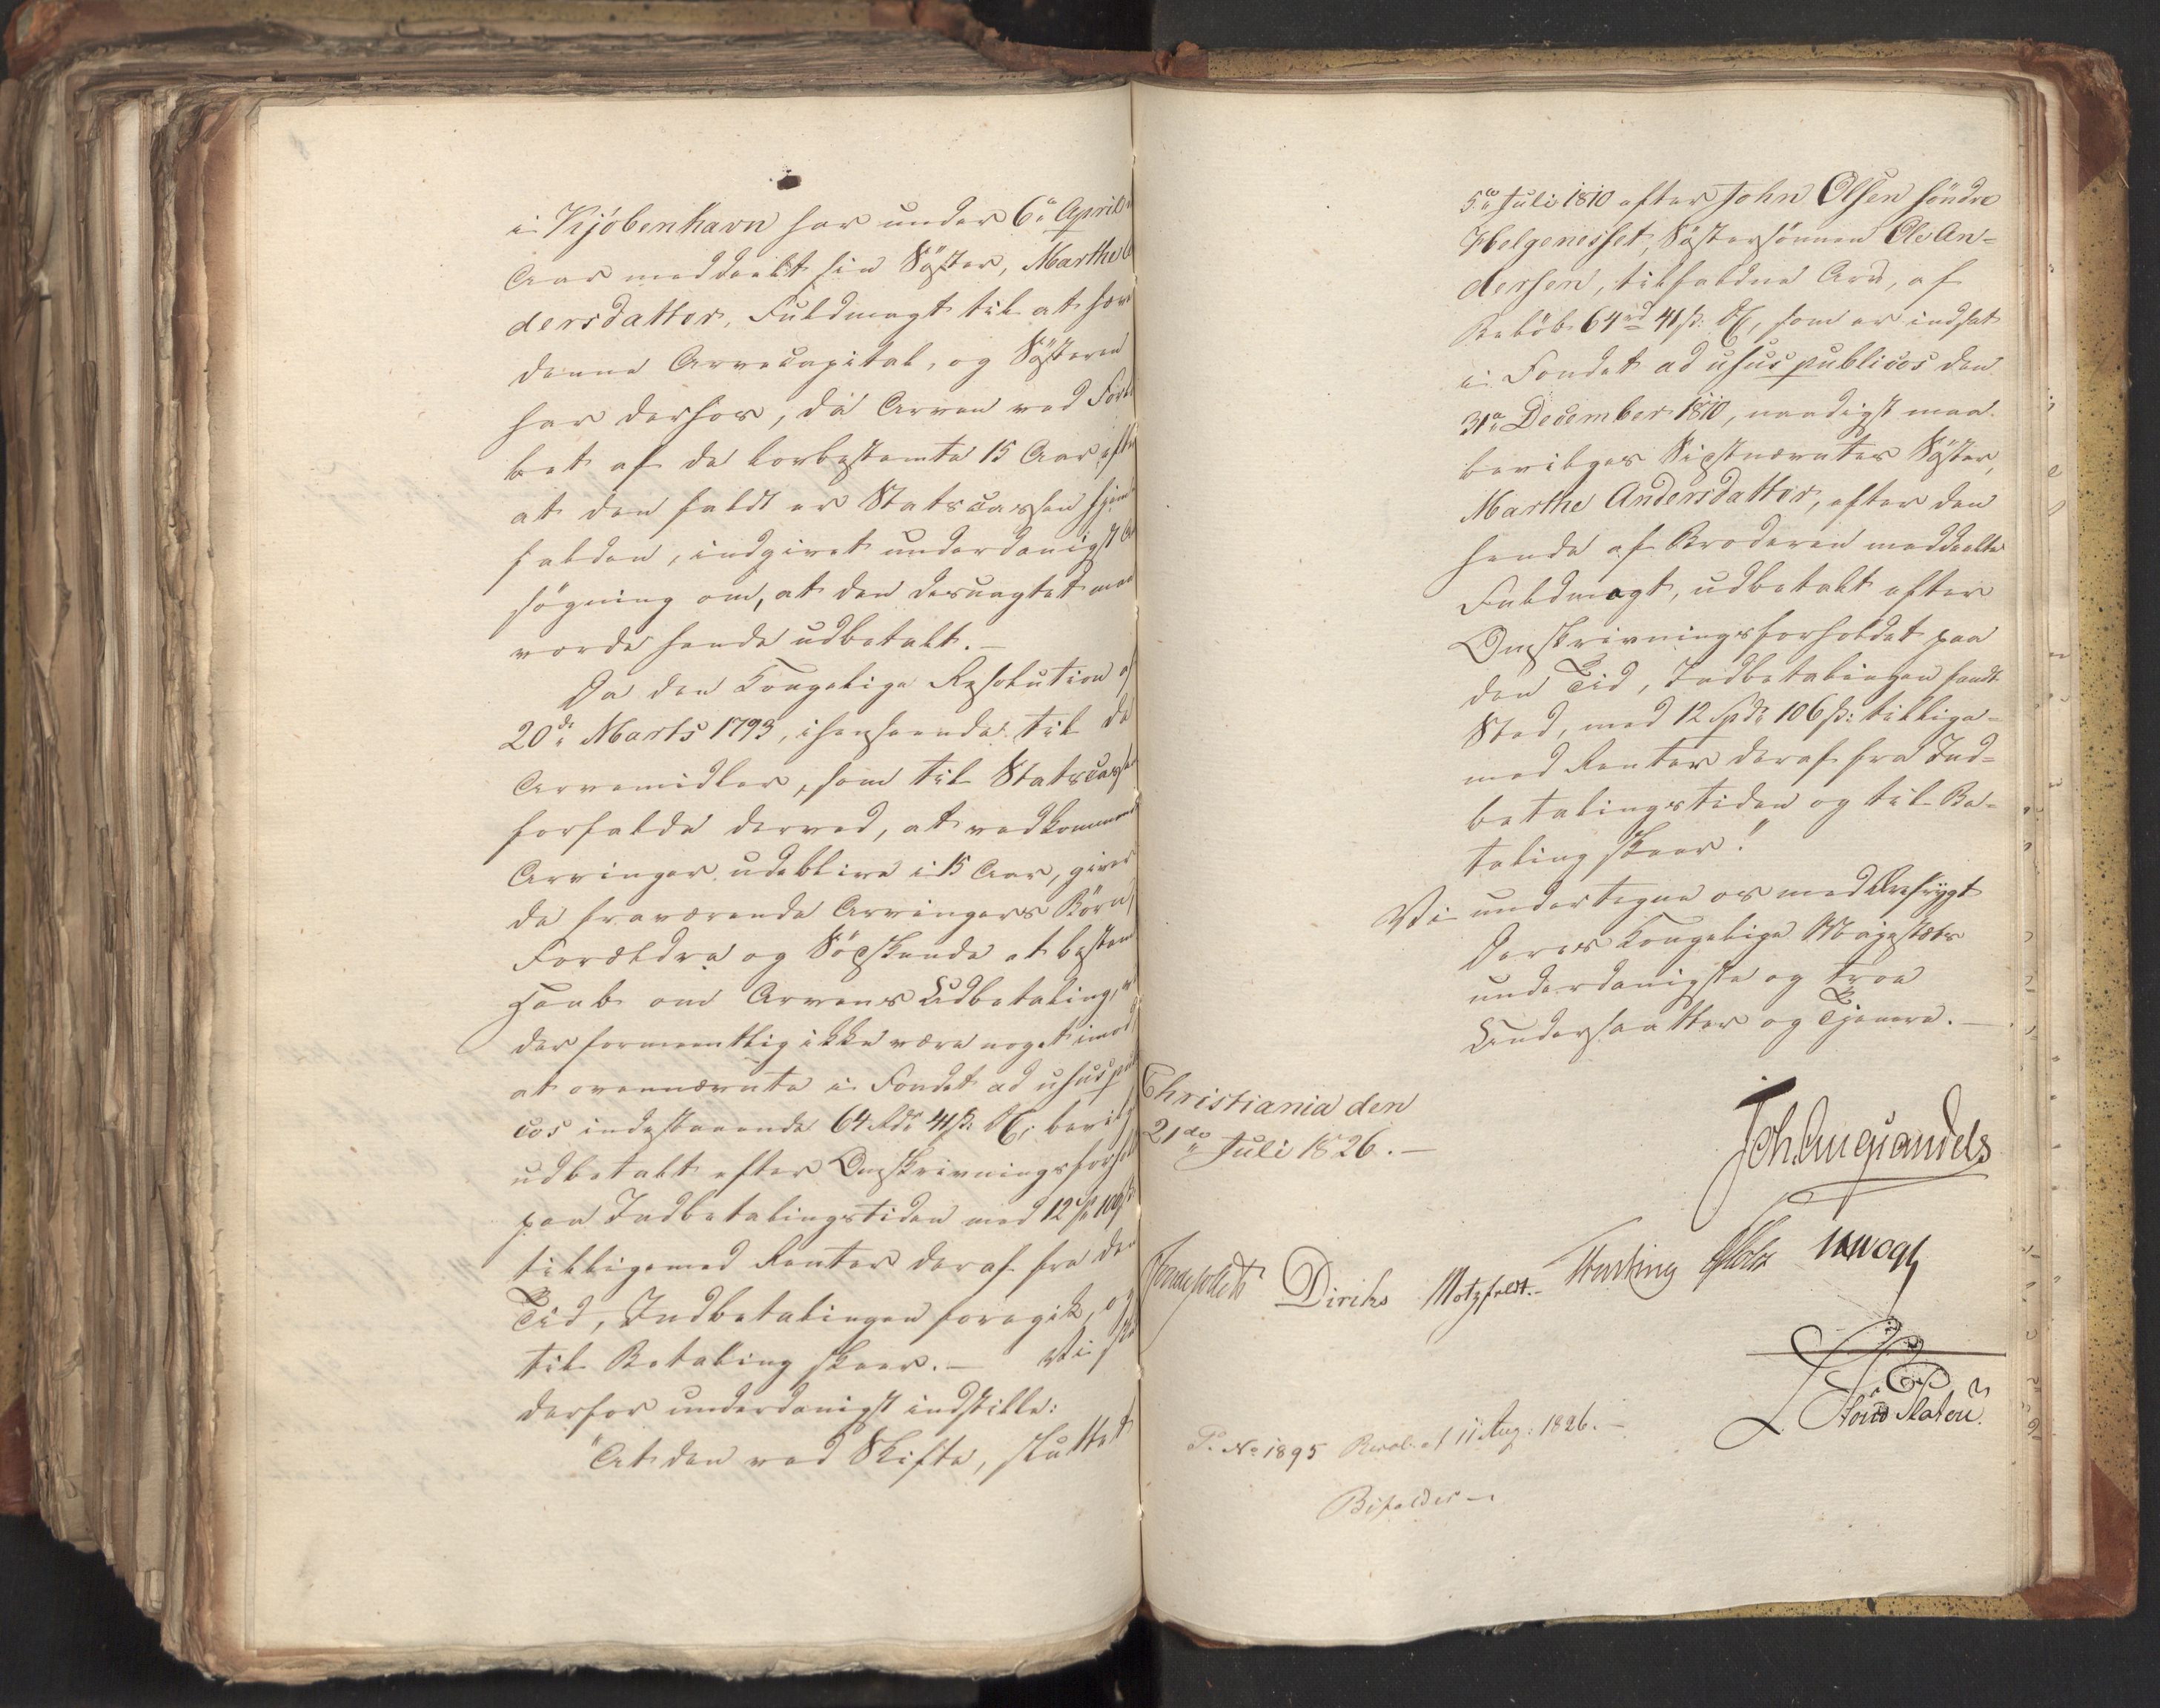 i Kjöbenhavn har under 6te April d
Aar meddeelt sin Söster, Marthe
dersdatter, Fuldmagt til at hæve
denne Arvecapital, og Södsteren
har derfor, da Arven ved Forlö
bet af de lovbestemte 15 Aar, efter
at den faldt er Statscassen hjem
falden, indgivet underdanigst An
søgning om, at den desuagtet maa
vorde hende udbetalt.—
Da den Kongelige Resolution af
20de Marts 1793, ihenseende til de
Arvemidler, som til Statscassen
forfalde derved, at vedkommende
Arvinger udeblive i 15 Aar, giver
de fraværende Arvingers Börn,
Forældre og Södskende et bestemt
Haab om Arvens Udbetaling,
der formeentlig ikke være noget imod
at ovennævnte i Fondet ad usus publi
cos indestaaende 64 Rdr 41 ß: bevilges
udbetalt efter Omskrivningsforhold
paa Indbetalingstiden med 12 Sp 106 ß
tilligemed Renter deraf fra den
Tid, Indbetalingen foregik, og
til Betaling skeer.— Vi skal
derfor underdanigst indstille:
"At den ved Skifte, sluttet
5te Juli 1810 efter John Olsen söndre
Helgenesset, Söstersönnen Ole An=
dersen, tilfaldne Arv, af
Belöb 64 rd 41 ß:, som er indsat
i Fondet ad usus publicos den
31te December 1810, naadigst maa
bevilges Sidstnævntes Söster,
Marthe Andersdatter, efter den
hende af Broderen meddeelte
Fuldmagt, udbetalt efter
Omskrivningsforholdet paa
den Tid, Indbetalingen fandt
Sted, med 12 Spd 106 ß: tillige=
med Renter deraf fra Ind=
betalingstiden og til Be=
taling skeer."
Vi undertegne os med Ærefrygt
Deres Kongelige Majestæts
underdanigste og troe
Undersaatter og Tjenere.—
Christiania den
21de Juli 1826.—
Joh. Aug. Sandels
Sommerfeldt Diriks Motzfeldt.— Fasting Holst Vogt
L. Stoud Platou.
P. No 1895 Resol. af 11 Aug: 1826.—
Bifaldes—.